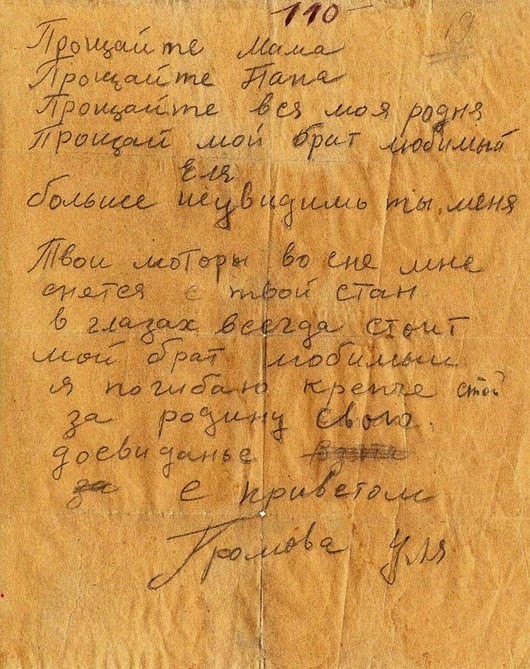 110
19
Прощайте Мама
Прощайте Папа
Прощайте вся моя родня
Прощай мой брат любимый
Еля
больше неувидишь ты меня
Твои моторы во сне мне
снятся
твой стан
в глазах всегда стоит
мой брат любимый
я погибаю крепче стой
за родину свою.
досвиданье
за
С приветом
Громова Уля